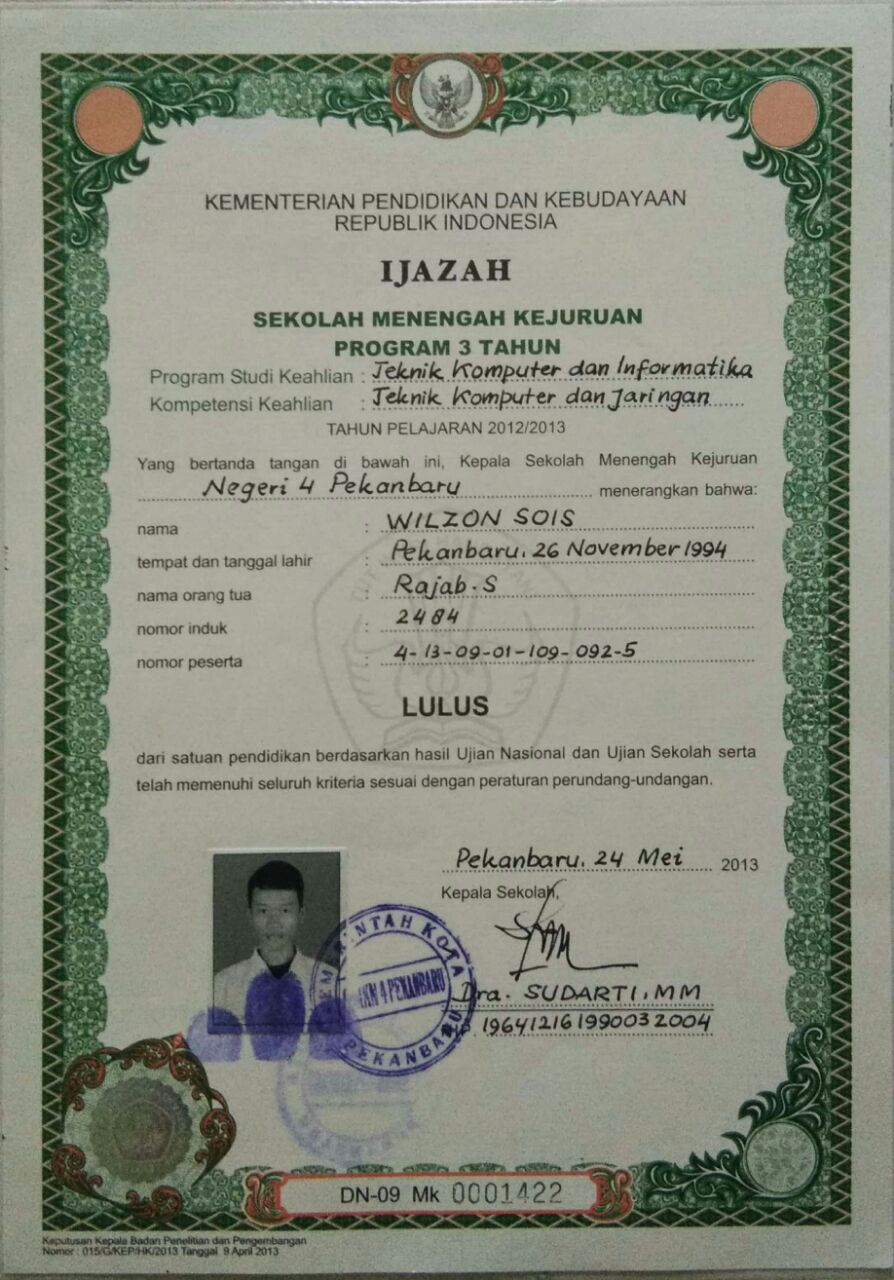 KEMENTERIAN PENDIDIKAN DAN KEBUDAYAAN
REPUBLIK INDONESIA
IJAZAH
SEKOLAH MENENGAH KEJURUAN
PROGRAM 3 TAHUN
Program Studi Keahlian : Teknik Komputer dan Informatika
Kompetensi Keahlian : Teknik Komputer dan Jaringan
TAHUN PELAJARAN 2012/2013
Yang bertanda tangan di bawah ini, Kepala Sekolah Menengah Kejuruan
Negeri 4 Pekanbaru menerangkan bahwa:
nama : WILZON SOIS
tempat dan tanggal lahir : Pekanbaru, 26 November 1994
nama orang tua : Rajab.S
nomor induk : 2484
nomor peserta : 4-13-09-01-109-092-5
LULUS
dari satuan pendidikan berdasarkan hasil Ujian Nasional dan Ujian Sekolah serta
telah memenuhi seluruh kriteria sesuai dengan peraturan perundang-undangan.
Pekanbaru, 24 Mei 2013
Kepala Sekolah,
PEMERINTAH KOTA
4 PEKANBARU
PEKANBARU
Dra. SUDARTI, MM
196412161990032004
DN-09 Mk 0001422
Keputusan Kepala Badan Penelitian dan Pengembangan
Nomor : 015/G/KEP/HK/2013 Tanggal 9 April 2013